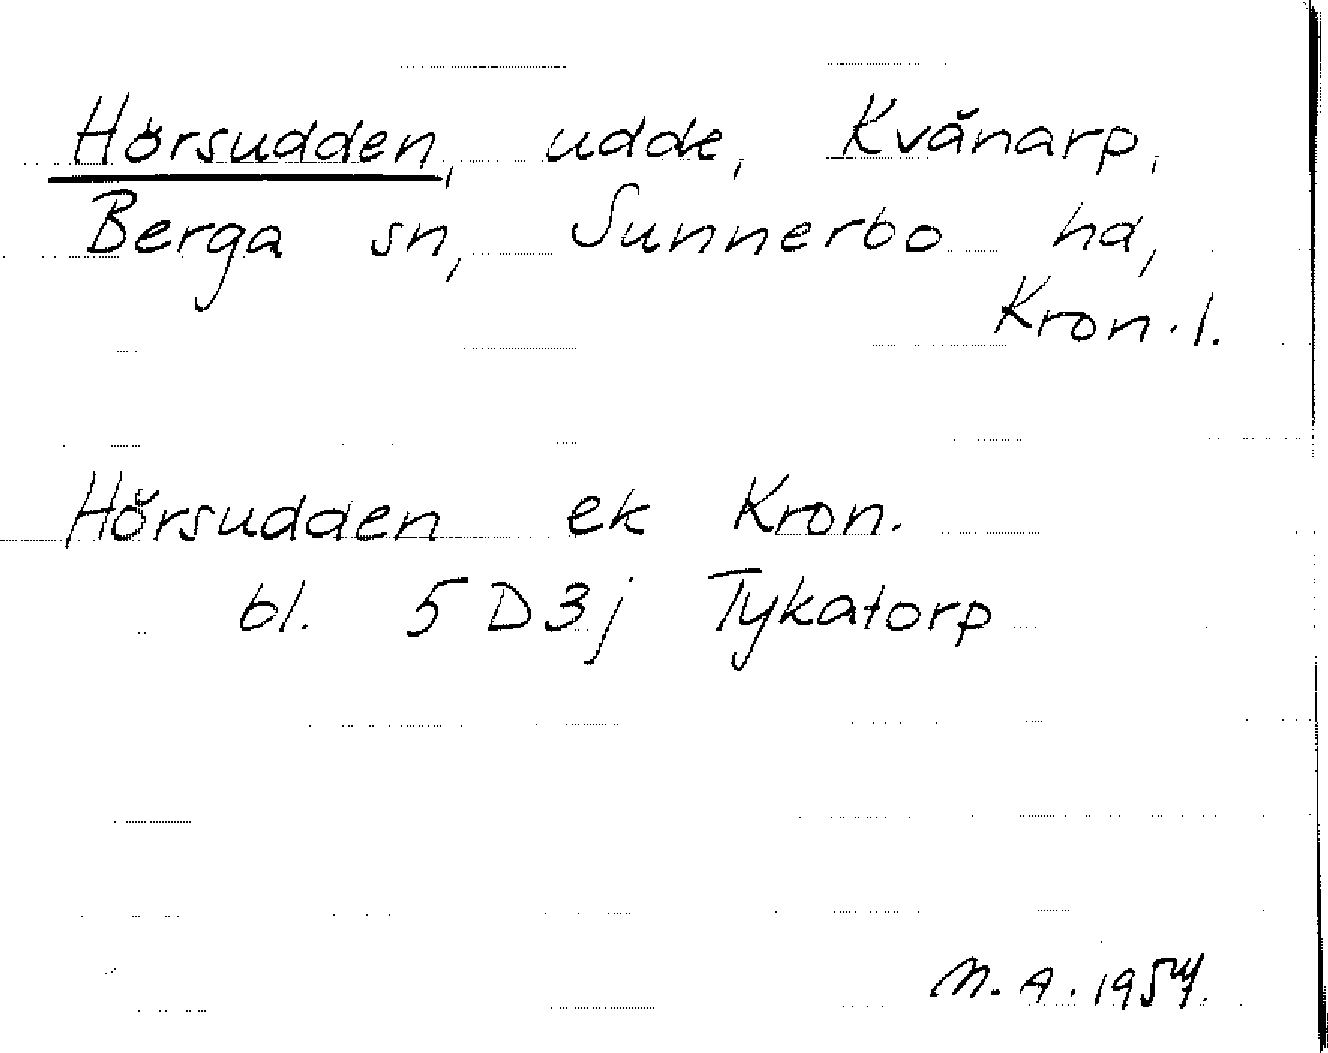 Hörsudden, udde, Kvänarp,
Berga sn, Sunnerbo hd,
Kron. l.
Hörsudden ek Kron.
bl. 5D3j Tykatorp
N.A. 1954.